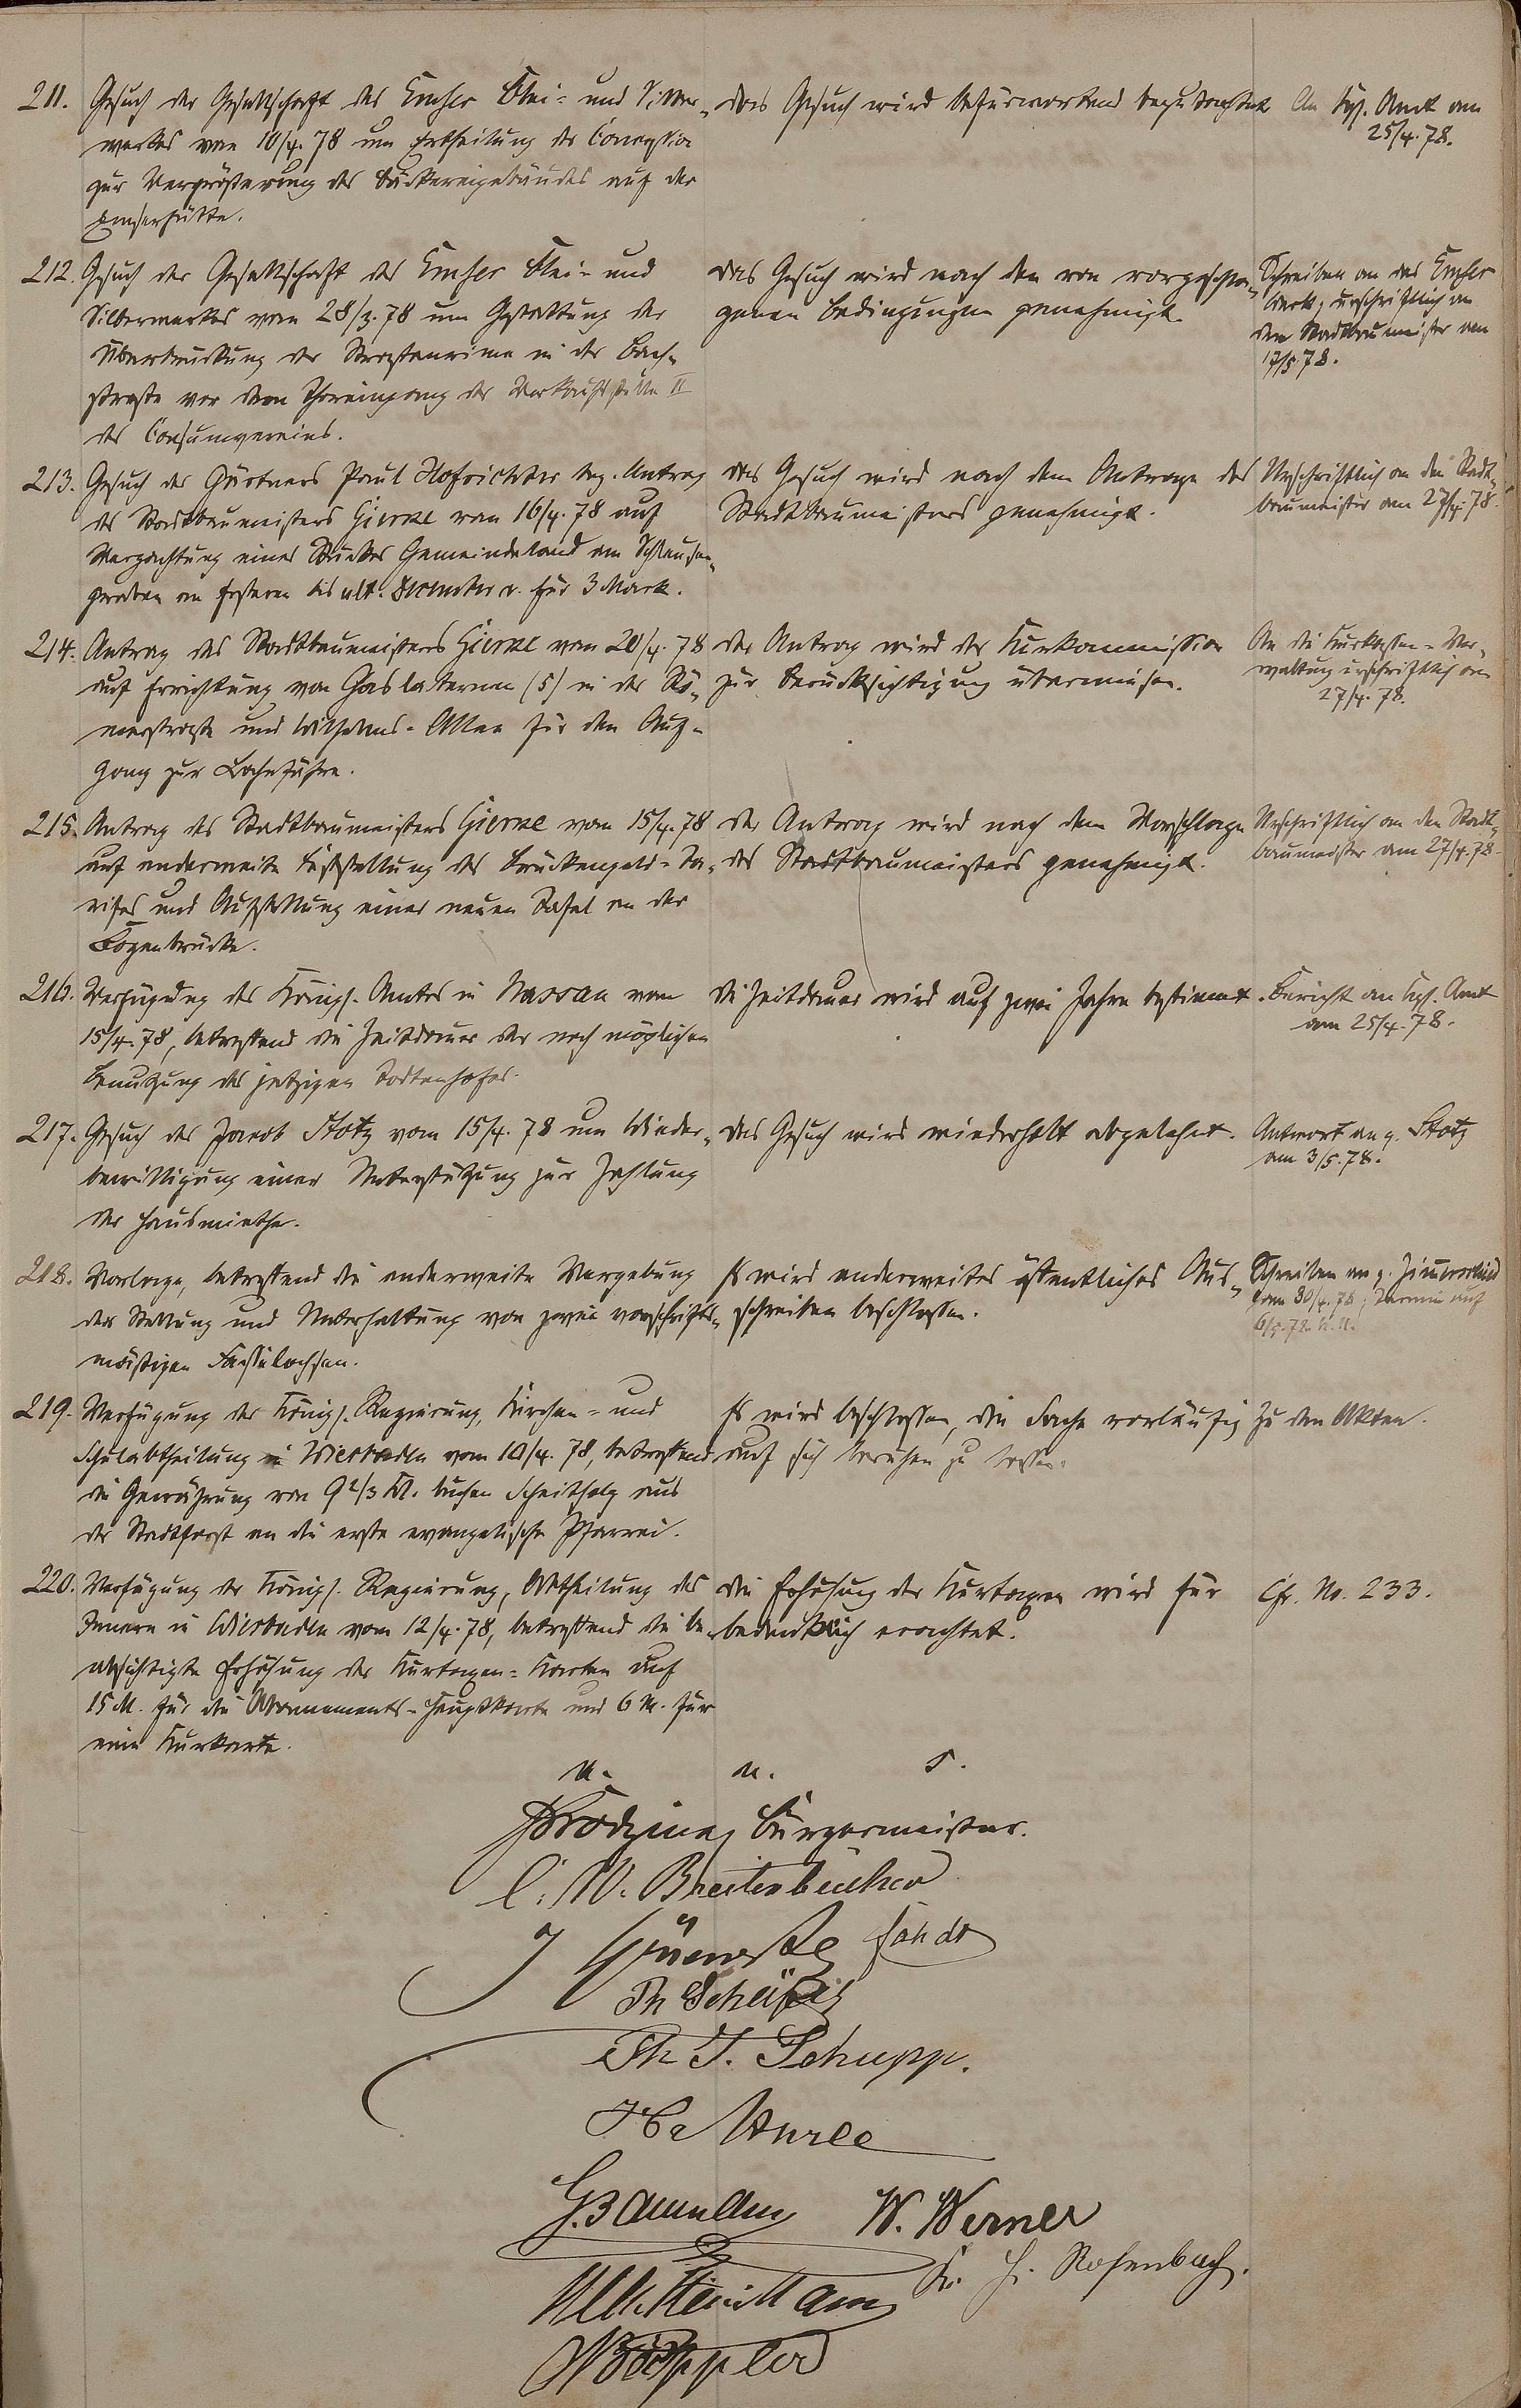 211. Gesuch der Gesellschaft des Emser Blei- und Silber-
werkes vom 10/4. 78 um Ertheilung der Concession
zur Vergrößerung des Bäckereigebäudes auf der
Emserhütte.
das Gesuch wird befürwortend begutachtet
An Kgl. Amt am
25/4. 78.
212. Gesuch der Gesellschaft des Emser Blei- und
Silberwerkes vom 28/3. 78 um Gestattung der
Überbrückung der Straßenrinne in der Bach-
straße vor dem Thoreingang der Verkaufsstelle II
des Consumvereins.
das Gesuch wird nach den von vorgeschla-
genen Bedingungen genehmigt.
Schreiben an das Emser
Werk; urschriftlich an
den Stadtbaumeister am
17/5. 78.
213. Gesuch des Gärtners Paul Hofrichter bzg. Antrag
des Stadtbaumeisters Gierke vom 16/4. 78 auf
Verpachtung eines Stückes Gemeindeland am Schleusen-
graben an Ersteren bis ult. Dezember c. für 3 Mark.
das Gesuch wird nach dem Antrage des
Stadtbaumeisters genehmigt.
Urschriftlich an den Stadt-
baumeister am 27/4. 78.
214. Antrag des Stadtbaumeisters Gierke vom 20/4. 78
auf Errichtung von Gaslaternen (5) in der Rö-
merstraße und Wilhelms-Allee für den Auf-
gang zur Bahnfähre.
der Antrag wird der Kurkommission
zur Berücksichtigung überwiesen.
An die Kurkassen-Ver-
waltung urschriftlich am
27/4. 78.
215. Antrag des Stadtbaumeisters Gierke vom 15/4. 78
auf anderweite Feststellung des Brückengeld-Ta-
rifes und Aufstellung einer neuen Tafel an der
Bogenbrücke.
der Antrag wird nach dem Vorschlage
des Stadtbaumeisters genehmigt.
Urschriftlich an den Stadt-
baumeister am 27/4. 78.
216. Verfügung des Königl. Amtes in Nassau vom
15/4. 78, betreffend die Zeitdauer der noch möglichen
Benutzung des jetzigen Todtenhofes.
die Zeitdauer wird auf zwei Jahre bestimmt.
Bericht an Kgl. Amt
am 25/4. 78.
217. Gesuch des Jacob Stotz vom 15/4. 78 um Wieder-
bewilligung einer Unterstützung zur Zahlung
der Hausmiethe.
das Gesuch wird wiederholt abgelehnt.
Antwort an p. Stotz
am 3/5. 78.
218. Vorlage, betreffend die anderweite Vergebung
der Stellung und Unterhaltung von zwei vorschrifts-
mäßigen Faselochsen.
Es wird anderweites öffentliches Aus-
schreiben beschlossen.
Schreiben an p.
vom 30/4. 78; Termin auf
6/5. 78
219. Verfügung der Königl. Regierung, Kirchen- und
Schulabtheilung in Wiesbaden vom 10/4. 78, betreffend
die Gewährung von 9 2/3 Kl. buchen Scheitholz aus
der Stadtforst an die erste evangelische Pfarrei.
Es wird beschlossen, die Sache vorläufig
auf sich beruhen zu lassen.
Zu den Akten.
220. Verfügung der Königl. Regierung, Abtheilung des
Innern in Wiesbaden vom 12/4. 78, betreffend die be-
absichtigte Erhöhung der Kurtaxen-Karten auf
15 M. für die Abonnements-Hauptkarte und 6 M. für
eine Kurkarte.
die Erhöhung der Kurtaxen wird für
bedenklich erachtet.
Cfr. No. 233.
u. u. s.
Bürgermeister.
C. W. Breitenbücher
Ph Schäfer
Ph J. Schupp.
W. Werner
H. Rosenbach.